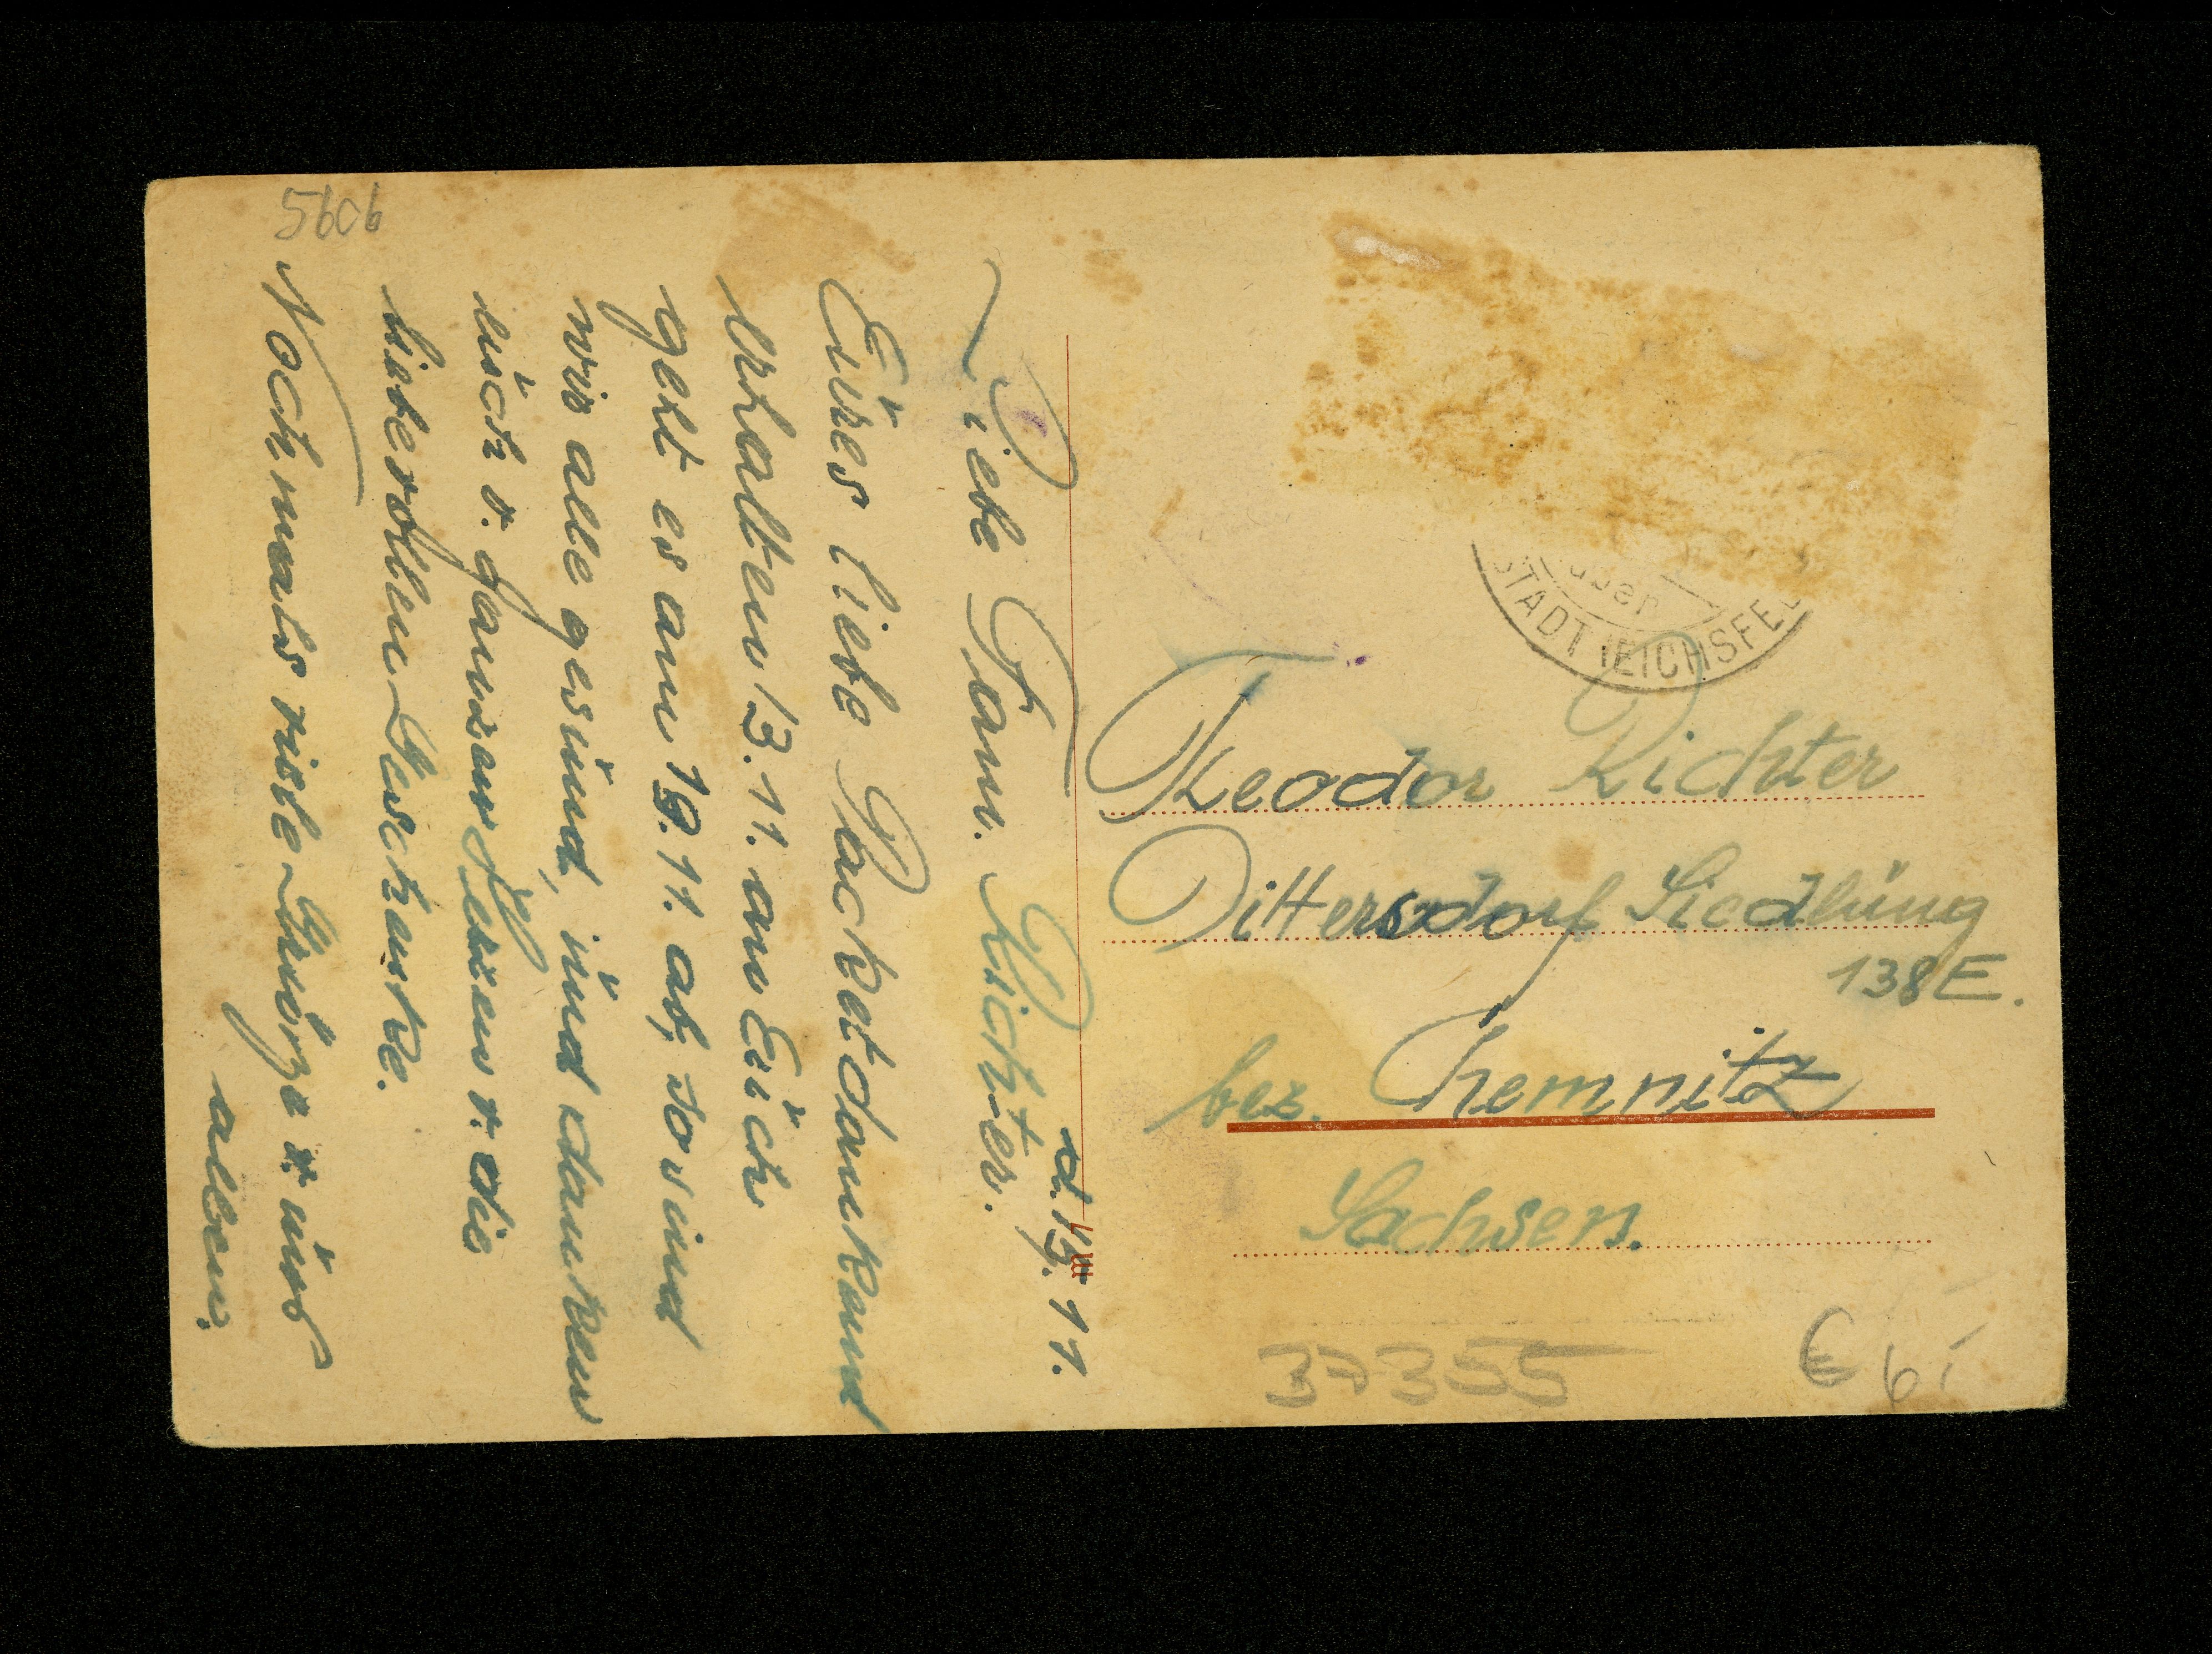 5606
d. 19. 11.
Liebe Fam. Richter.
Eures liebe Packet dankend
erhalten 13. 11. an Euch
geht es am 19. 11. ab, so sind
wir alle gesund, und danken
euch v. ganzen Herzen v. die
lieberollen Geschenke.
Nochmals viele Grüße v. uns
allen.
über
STADT (EICHSFEL
Theodor Richter
Dittersdorf Siedlung
138 E.
bez. Chemnitz
Sachsen.
37355
€ 6,-